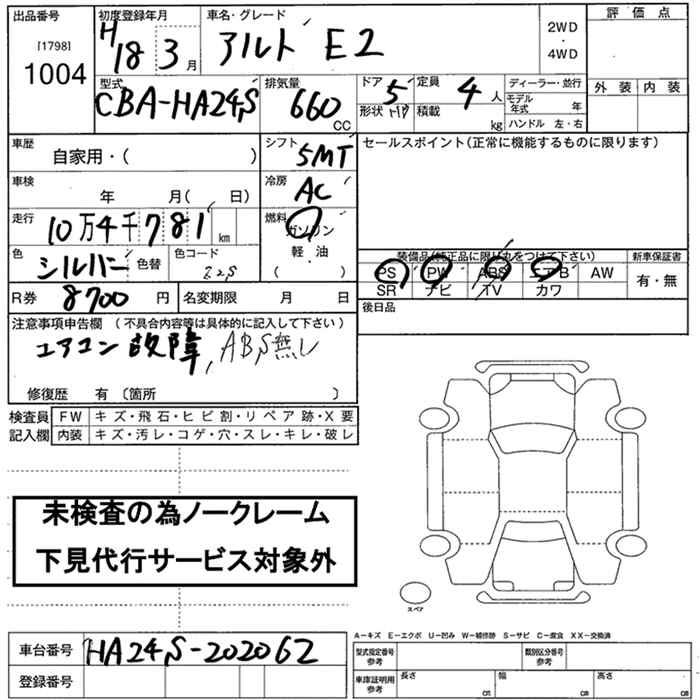 出品番号 初度登録年月 車名・グレード 評価点
[1798]
1004
H18 3月 アルト E2 2WD・4WD
外装 内装
型式 排気量 ドア 5 定員 4人 ディーラー・並行
CBA-HA24S 660 CC 形状 積載 kg モデル年式 年
ハンドル 左・右
車歴 シフト セールスポイント(正常に機能するものに限ります)
自家用・( ) 5MT
車検 冷房
年 月( 日) AC
走行 燃料
10万4千781km ガソリン
色 色替 色コード 軽・油 装備品(純正品に限り丸をつけて下さい) 新車保証書
シルバー Z2S ( ) PS PW ABS エアB AW 有・無
SR ナビ TV カワ
R券 8700円 名変期限 月 日 後日品
注意事項申告欄 (不具合内容等は具体的に記入して下さい)
エアコン 故障, ABS無し
修復歴 有 〔箇所 〕
検査員 FW キズ・飛石・ヒビ割・リペア跡・X要
記入欄 内装 キズ・汚レ・コゲ・穴・スレ・キレ・破レ
未検査の為ノークレーム
下見代行サービス対象外
スペア
A-キズ E-エクボ U-凹み W-補修跡 S-サビ C-腐食 XX-交換済
車台番号 HA24S-202062 型式指定番号 参考 類別区分番号 参考
登録番号 車庫証明用 参考 長さ cm 幅 cm 高さ cm